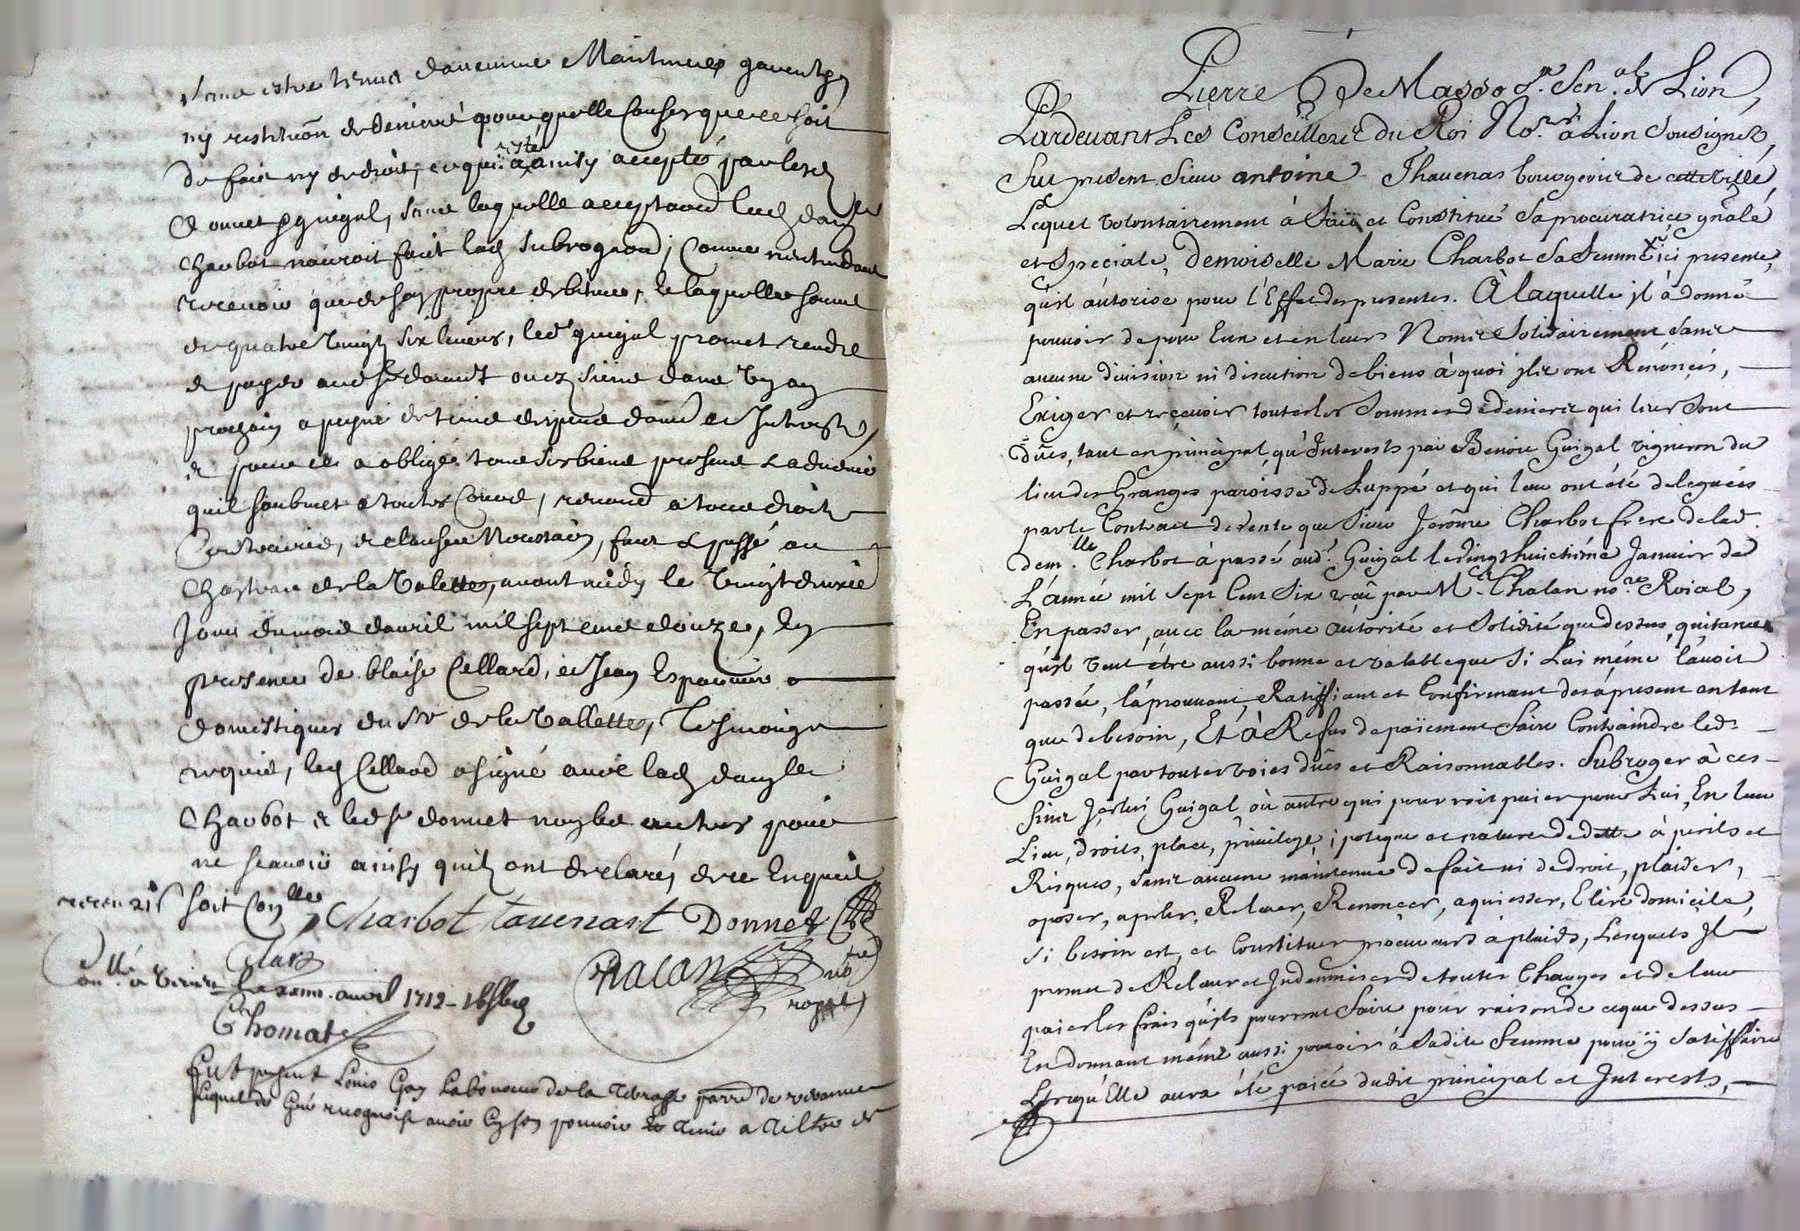 sans estre tenus d'aucune Maintenue garentye
ny restitution de deniers pour quelle cause que ce soit
de fait ny de droit, ce qui a esté ainsy accepté par lesd
Donnet & guigal, sans laquelle acceptaon lad dam.lle
Charbot n'auroit fait lad subrogaon, comme n'entendant
recevoir que de son propre debiteur, laquelle somme
de quatre vingt six livres, led guigal promet rendre
& payer aud Sr donnet ou es siens dans un an
prochain a peyne de tous despens dam et Interests,
& pour ce a obligé tous ses biens presens & advenir
quil soubmet a toutes Cours, renoncé a tous droits
Contraires, & clauses Necessaires, fait & passé au
Chasteau de la Valette, avant midy le vingt deuxie
Jour du mois davril mil sept cent douze, En
presence de blaise Cellard, et Jean Esparvier
domestiques du Sr de la Vallette, Tesmoings
requis, led Cellard a signé avec lad dam.lle
Charbot & led Sr donnet non led autres pour
ne scavoir ainsy quilz ont declaré, de ce Enquis
soit Con.lle Charbot tavenast Donnet
Clarz
Con.llé à avril 1712
Thomate
Chalan no.re royal
Fut present Louis Gay Laboureur de la Terrasse parr.e de
Lequel de Gré recognoist avoir
Pierre De Masso S.r Sen.al de Lion,
Pardevant Les Conseillers du Roi No.res à Lion Sousignez,
fut présent Sieur antoine Thavenas bourgeois de cette ville,
Lequel volontairement à fait et Constitué Sa procuratrice gñalé
et Speciale, Demoiselle Marie Charbot Sa femme ici presente,
qu'il autorise pour l'Effet des presentes. À laquelle il à donné
pouvoir de pour Eux et en leurs Noms Solidairement Sans
aucune division ni discution de biens à quoi ils ont Renoncés,
Exiger et reçevoir toutes les Sommes de Deniers qui leur Sont
Dües, tant en principal qu'Interests par Benoit Guigal vigneron du
lieu des Granges paroisse de Luppé et qui leur ont été deleguées
par le Contract de vente que Sieur Jerôme Charbot frere de lad.
dem.lle Charbot à passé aud.t Guigal le vingt huictiéme Janvier de
L'année mil Sept Cent Six reçû par M.e Chalan no.re Roial,
En passer, avec la même autorité et Solidité que dessus, quitance
qu'il veut être aussi bonne et valable que Si Lui même l'avoit
passée, l'aprouvant, Ratiffiant et Confirmant des à present en tant
que de besoin, Et à Refus de païement faire Contraindre led.t
Guigal par toutes voies düës et Raisonnables. Subroger à ces
fins Jcelui Guigal ou autre qui pourroit paier pour Lui, En leur
Lieu, droits, place, privilege, ipoteque et nature de dette à perils et
Risques, Sans aucune maintenue de fait ni de droit, plaider,
oposer, apeler, Relever, Renoncer, aquiesser, Elire domicile,
Si besoin est, et Constituer procureurs à plaids, Lesquels Il
promet de Relever et Indemniser de toutes Charges et de leur
paier les frais qu'ils pourront faire pour raison de ce que dessus
En donnant même aussi pouvoir à Sadite femme pour ÿ Satisffaire
Lorsqu'Elle aura été paiée dudit principal et Interests,